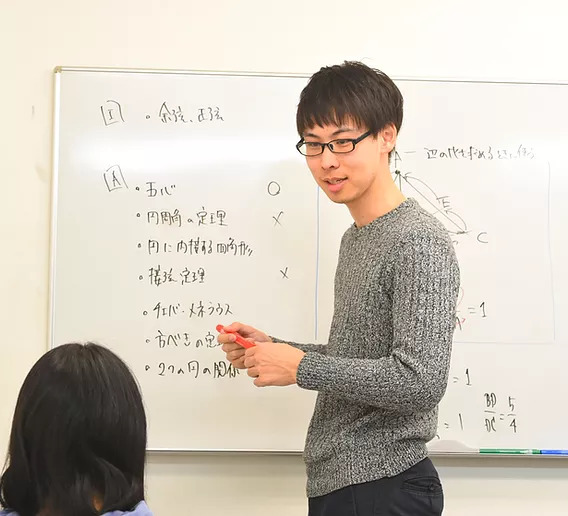 [I] ・余弦、正弦
[A] ・五心 ○
・円周角の定理 ×
・円に内接する四角形
・接弦定理 ×
・チェバ・メネラウス
・方べきの定
・2つの円の関係
辺の比を求めるときに使う
E
C
=1
=1
=1
BD/DC=5/4